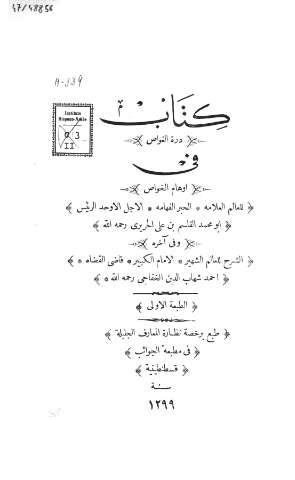 17/48856
A-339
Instituto
Hispano-Arabe
Q 3
II
كتاب
درة الغواص
فى
اوهام الخواص
﴿ للعالم العلامه * الحبر الفهامه * الاجل الاوحد الرئيس ﴾
﴿ ابو محمد القاسم بن على الحريرى رحمه الله ﴾
وفى آخره
﴿ الشرح للعالم الشهير * الامام الكبير * قاضى القضاه * ﴾
﴿ احمد شهاب الدين الخفاجى رحمه الله * ﴾
﴿ الطبعة الاولى ﴾
﴿ طبع برخصة نظارة المعارف الجليلة ﴾
﴿ فى مطبعة الجوائب ﴾
﴿ قسطنطينية ﴾
سنة
١٢٩٩